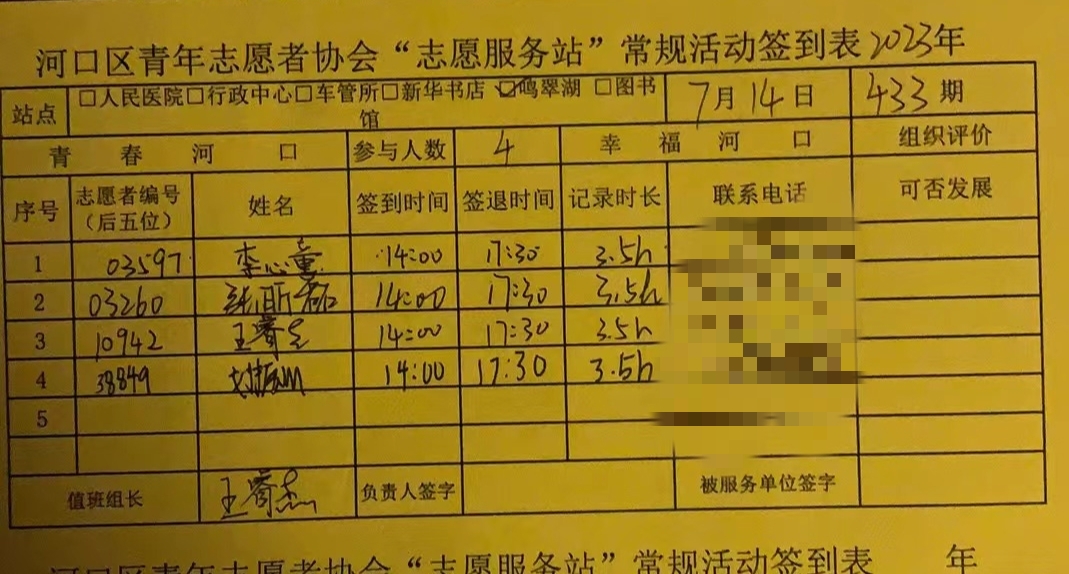 河口区青年志愿者协会“志愿服务站”常规活动签到表2023年
站点 □人民医院□行政中心□车管所□新华书店 ☑鸣翠湖 □图书馆 7月14日 433期
青春河口 参与人数 4 幸福河口 组织评价
序号 志愿者编号（后五位） 姓名 签到时间 签退时间 记录时长 联系电话 可否发展
1 03597 李心童 14:00 17:30 3.5h
2 03260 14:00 17:30 3.5h
3 10942 王睿 14:00 17:30 3.5h
4 38849 14:00 17:30 3.5h
5
值班组长 王睿杰 负责人签字 被服务单位签字
河口区青年志愿者协会“志愿服务站”常规活动签到表 年